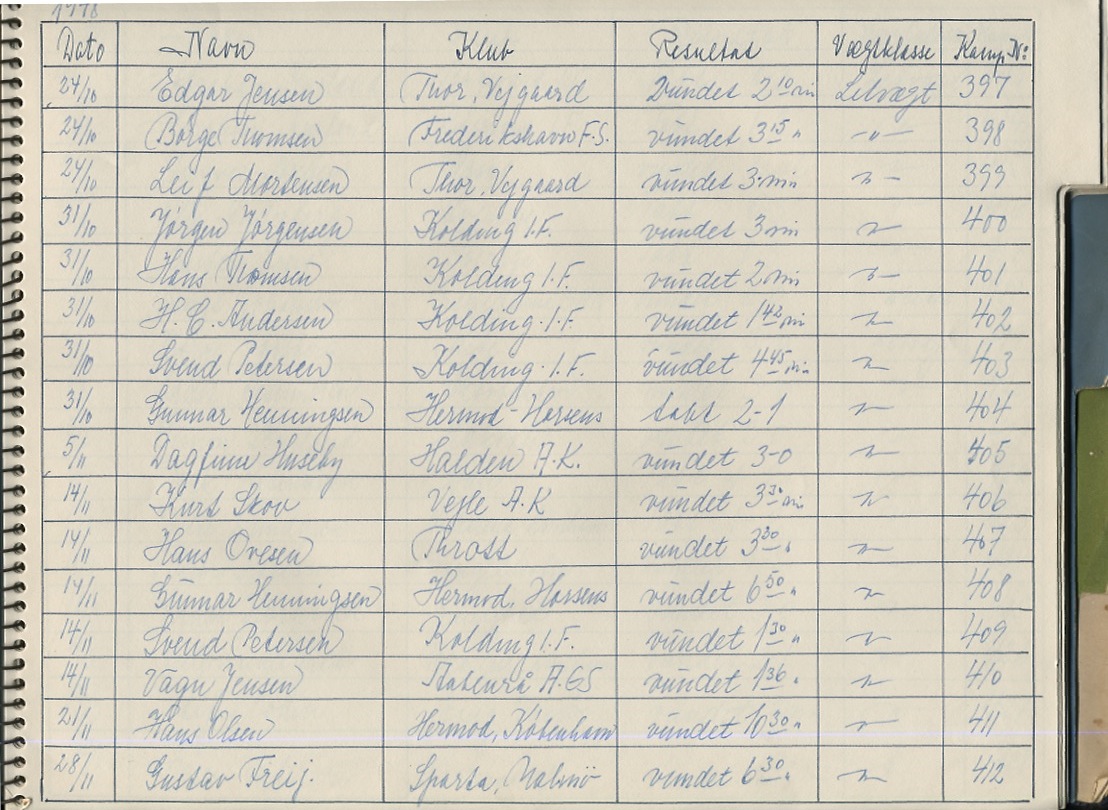 Dato Navn Klub Resultat Vægtklasse Kamp Nº
24/10 Edgar Jensen Thor, Vejgaard Vundet 2 10 min Letvægt 397
24/10 Börge Thomsen Frederikshavn F.S. vundet 3 15 " -"- 398
24/10 Leif Mortensen Thor, Vejgaard vundet 3 min -"- 399
31/10 Jörgen Jörgensen Kolding I.F. vundet 3 min -"- 400
31/10 Hans Thomsen Kolding I.F. vundet 2 min -"- 401
31/10 H. C. Andersen Kolding I.F. vundet 1 42 min -"- 402
31/10 Svend Petersen Kolding I.F. vundet 4 45 min -"- 403
31/10 Gunnar Henningsen Hermod - Horsens tabt 2-1 -"- 404
5/11 Dagfinn Huseby Halden A.K. vundet 3-0 -"- 405
14/11 Kurt Skov Vejle A.K vundet 3 30 min -"- 406
14/11 Hans Ovesen Thrott vundet 3 30 " -"- 407
14/11 Gunnar Henningsen Hermod, Horsens vundet 6 50 " -"- 408
14/11 Svend Petersen Kolding I.F. vundet 1 30 " -"- 409
14/11 Vagn Jensen Aabenrå A.GS vundet 1 36 " -"- 410
21/11 Hans Olsen Hermod, Köbenhavn vundet 10 30 " -"- 411
28/11 Gustav Freij. Sparta, Malmö vundet 6 30 " -"- 412